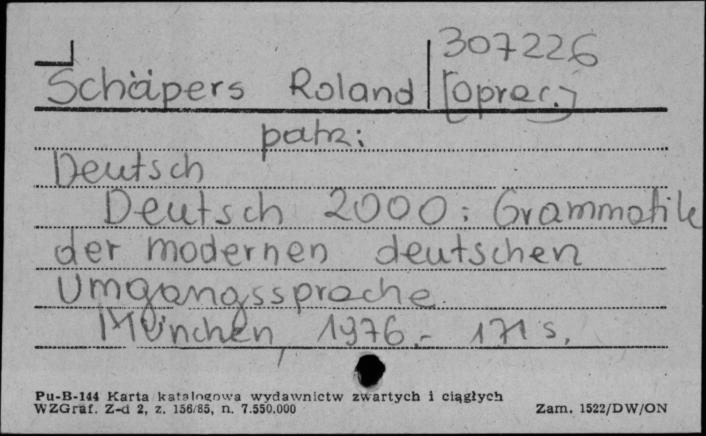 307226
Schäpers Roland [oprac.]
patrz:
Deutsch
Deutsch 2000 : Grammatik
der modernen deutschen
Umgangssprache.
München, 1976.- 171 s.
Pu-B-144 Karta katalogowa wydawnictw zwartych i ciągłych
WZGraf. Z-d 2, z. 156/85, n. 7.550.000
Zam. 1522/DW/ON